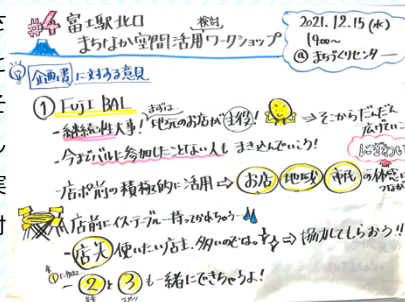 #4 富士駅北口
まちなか空間活用検討ワークショップ
2021.12.15(水)
19:00〜
@まちづくりセンター
企画書に対する意見
① FUJI BAL
- 継続性大事! まずは 地元のお店が主役! ⇒ そこからだんだん広げていこう
- 今までバルに参加したことない人も まきこんでいこう!
にぎわい
- 店舗前の積極的に活用 ⇒ お店 地域 市民 の体感
店前にイス・テーブル 持ってかれちゃう
- 店先 使いたい店主、多いのでは ⇒ 協力してもらおう!!
- ② と ③ も一緒にできちゃうよ!